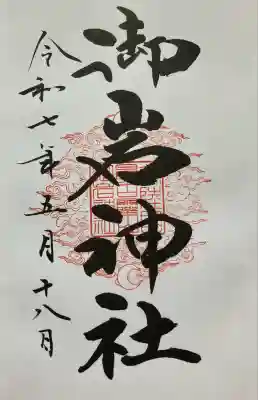 御岩神社
令和七年五月十八日